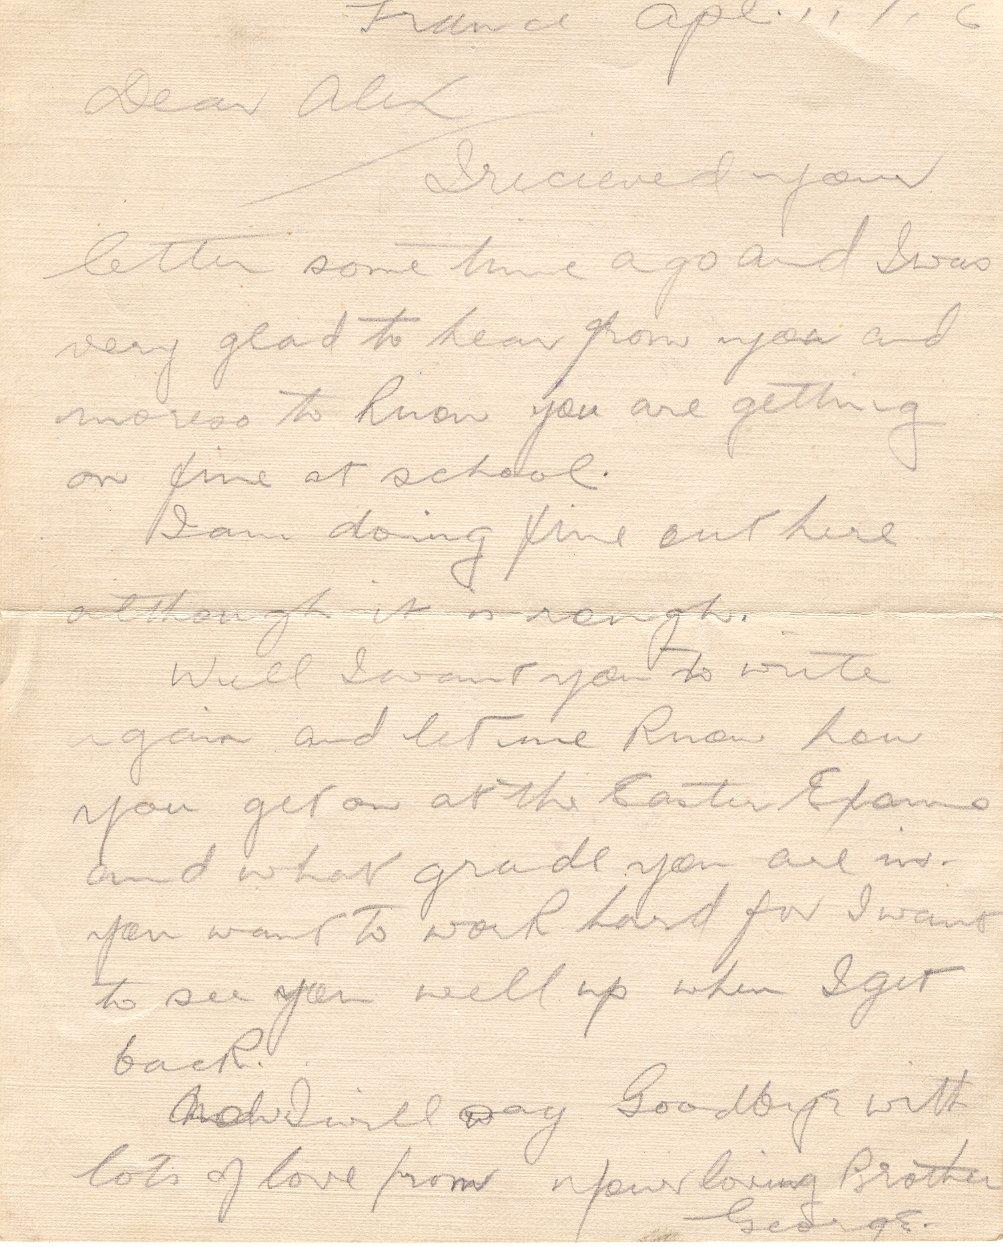 France Apl.
Dear Alex
I recieved your
letter some time ago and I was
very glad to hear from you and
moreso to know you are getting
on fine at school.
I am doing fine out here
although it is rough.
Well I want you to write
again and let me know how
you get on at the Easter Exams
and what grade you are in.
you want to work hard for I want
to see you well up when I get
back.
Now I will say Goodbye with
lots of love from your loving Brother
George.